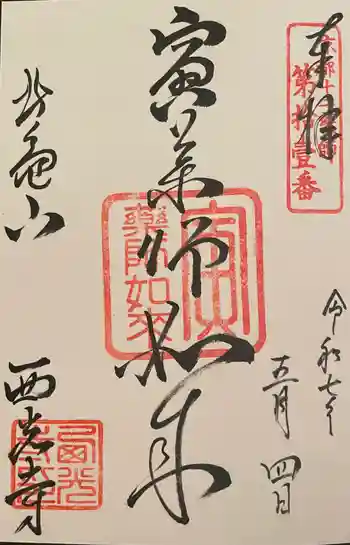 奉拝
京都十二薬師
第拾壹番
令和七年
五月四日
寅薬師如来
寅
薬師如来
西光寺